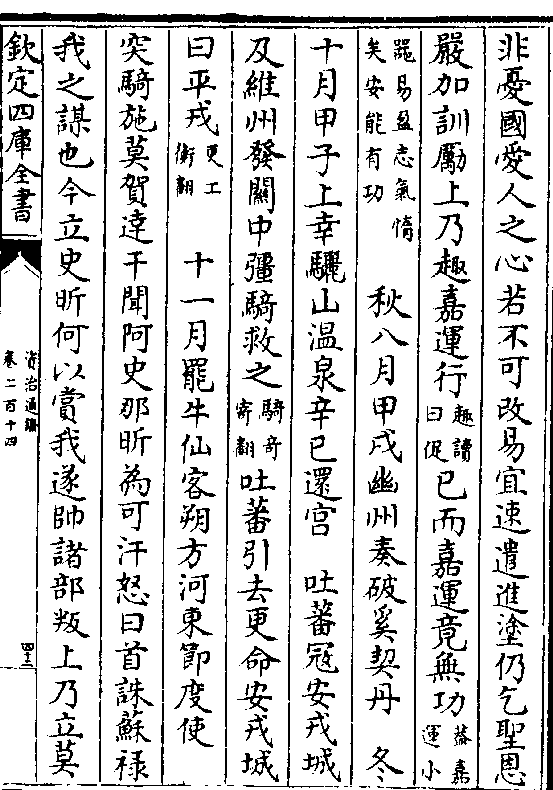 非憂國愛人之心若不可改易宜速遣進塗仍乞聖恩
嚴加訓勵上乃趣嘉運行趣讀曰促已而嘉運竟無功蓋嘉運小
器易盈志氣惰矣安能有功 秋八月甲戌幽州奏破奚契丹 冬
十月甲子上幸驪山温泉辛巳還宫 吐蕃寇安戎城
及維州發關中彍騎救之騎奇寄翻吐蕃引去更命安戎城
曰平戎更工衡翻 十一月罷牛仙客朔方河東節度使
突騎施莫賀達干聞阿史那昕為可汗怒曰首誅蘇禄
我之謀也今立史昕何以賞我遂帥諸部叛上乃立莫
欽定四庫全書
資治通鑑
卷二百十四
四三